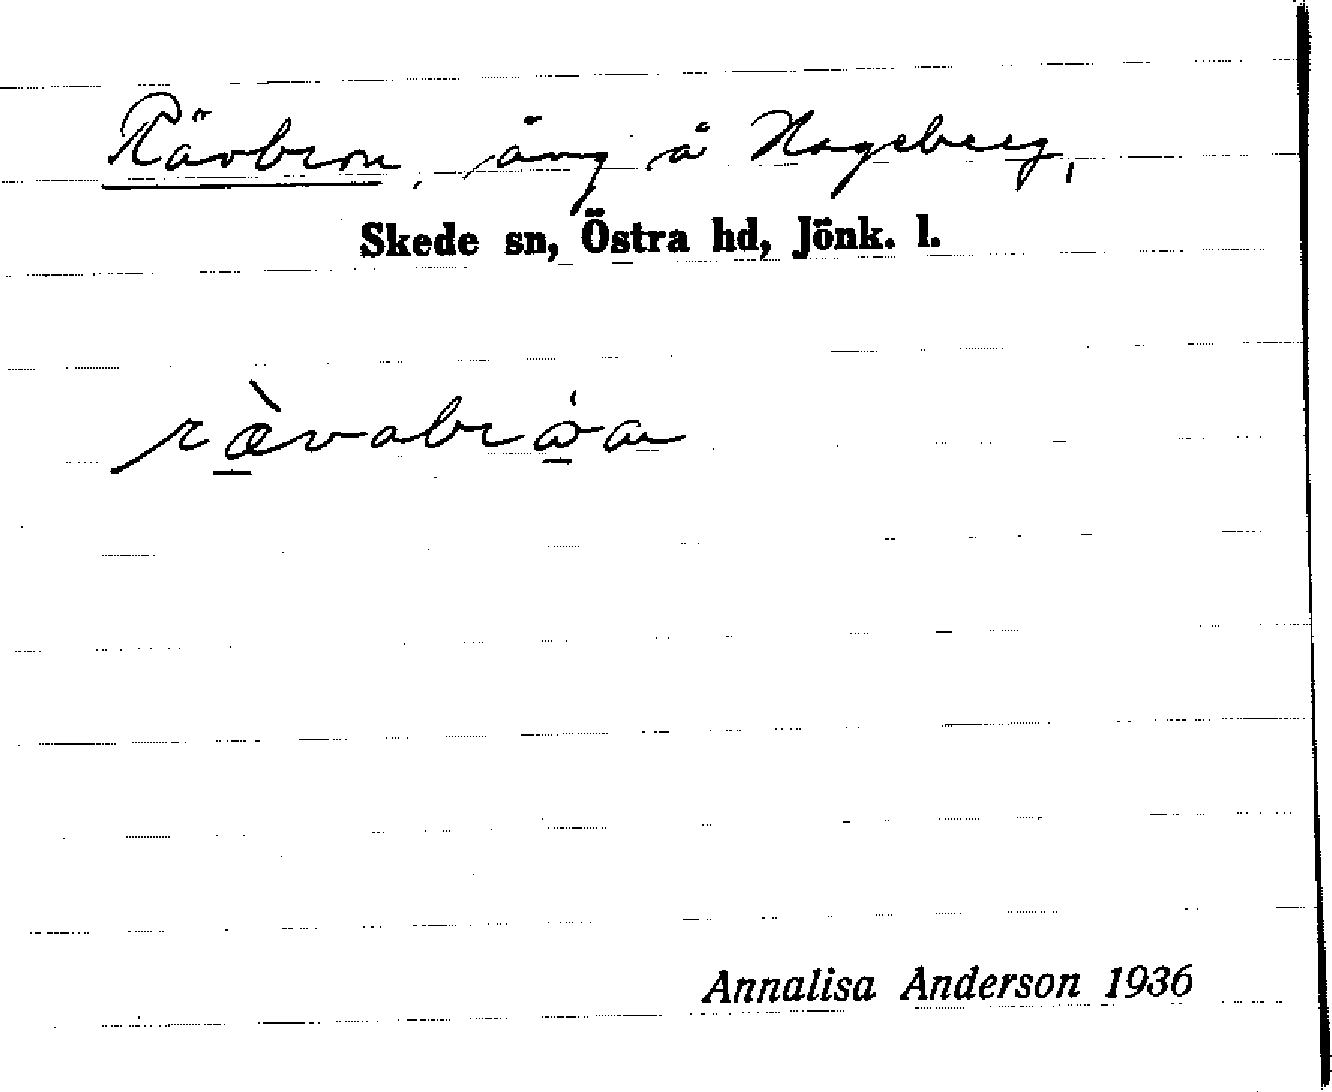 Rävbron, äng å Hageberg,
Skede sn, Östra hd, Jönk. l.
ræ̀vabróa
Annalisa Anderson 1936